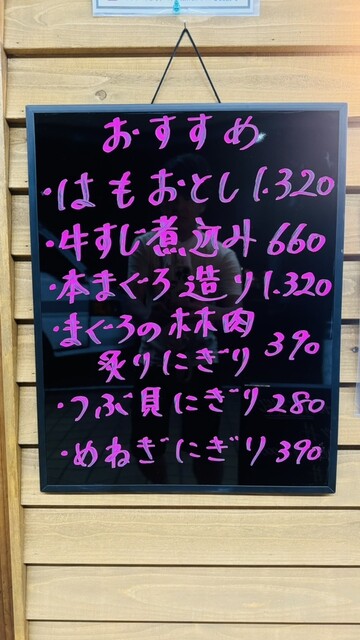 おすすめ
・はもおとし 1.320
・牛すじ煮込み 660
・本まぐろ造り 1.320
・まぐろのホホ肉
炙りにぎり 390
・つぶ貝にぎり 280
・めねぎにぎり 390